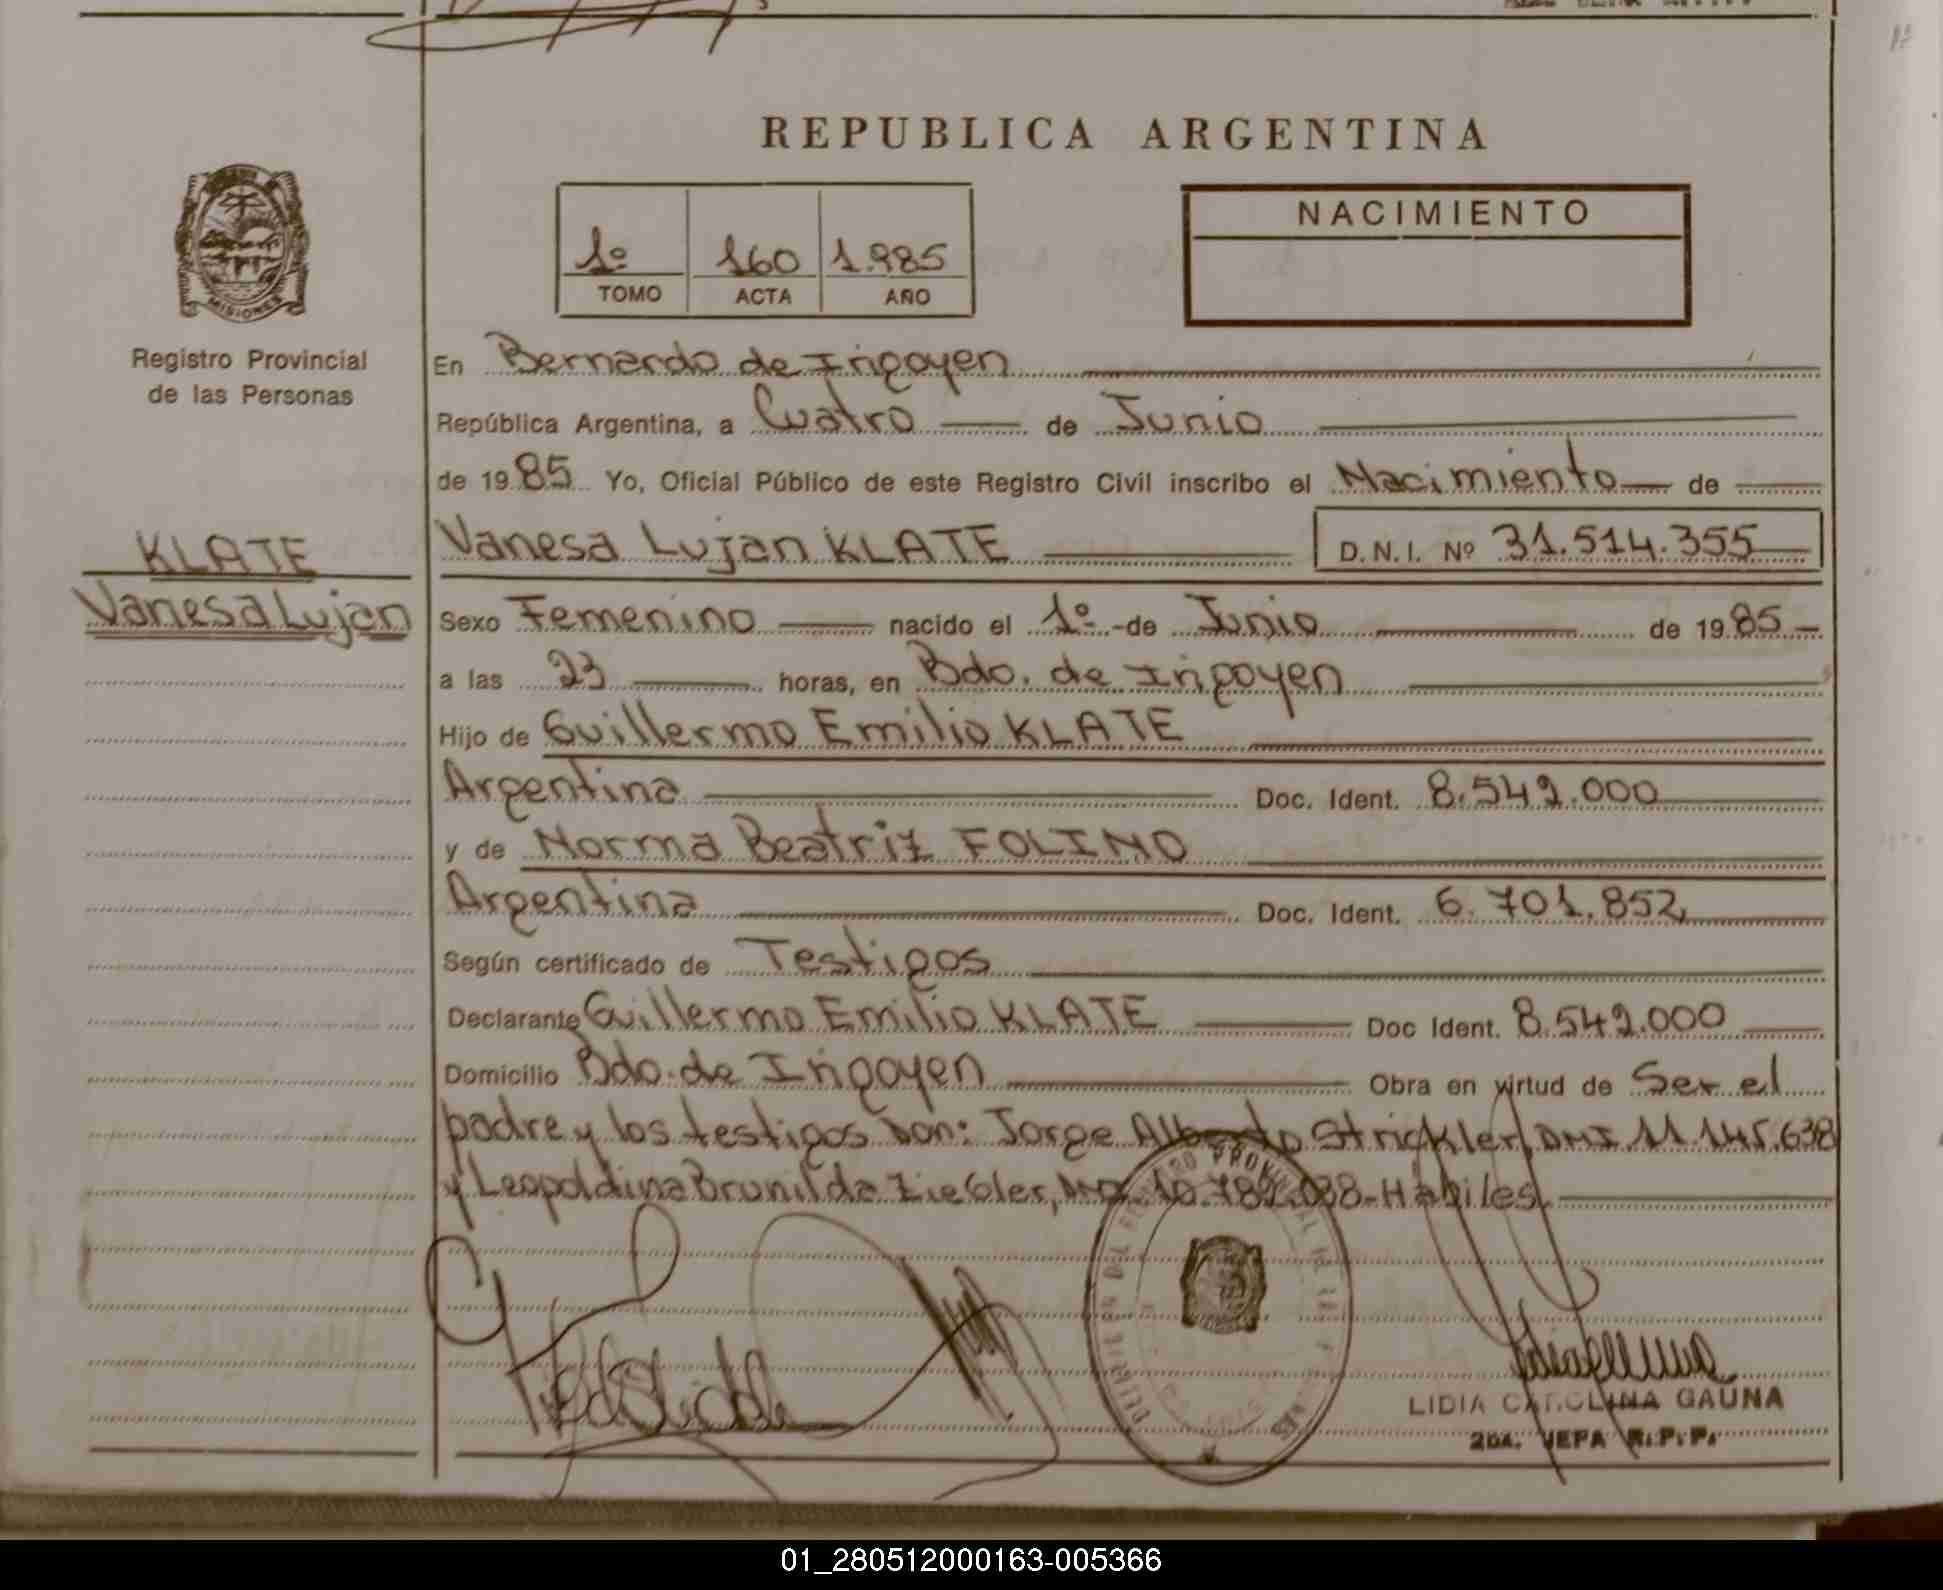 REPUBLICA ARGENTINA
1º 160 1.985
TOMO ACTA AÑO
NACIMIENTO
MISIONES
Registro Provincial
de las Personas
KLATE
Vanesa Lujan
En Bernardo de Irigoyen
República Argentina, a Cuatro de Junio
de 1985 Yo, Oficial Público de este Registro Civil inscribo el Nacimiento de
Vanesa Lujan KLATE D.N.I. Nº 31.514.355
Sexo Femenino nacido el 1º de Junio de 1985
a las 23 horas, en Bdo. de Irigoyen
Hijo de Guillermo Emilio KLATE
Argentina Doc. Ident. 8.542.000
y de Norma Beatriz FOLINO
Argentina Doc. Ident. 6.701.852
Según certificado de Testigos
Declarante Guillermo Emilio KLATE Doc Ident. 8.542.000
Domicilio Bdo. de Irigoyen Obra en virtud de Ser el
padre y los testigos Don: Jorge Alberto Strickler, DNI 11.145.638
y Leopoldina Brunilda Ziebler, 10.782.038 - Hábiles
LIDIA CAROLINA GAUNA
2DA. JEFA R.P.P.
01_280512000163-005366